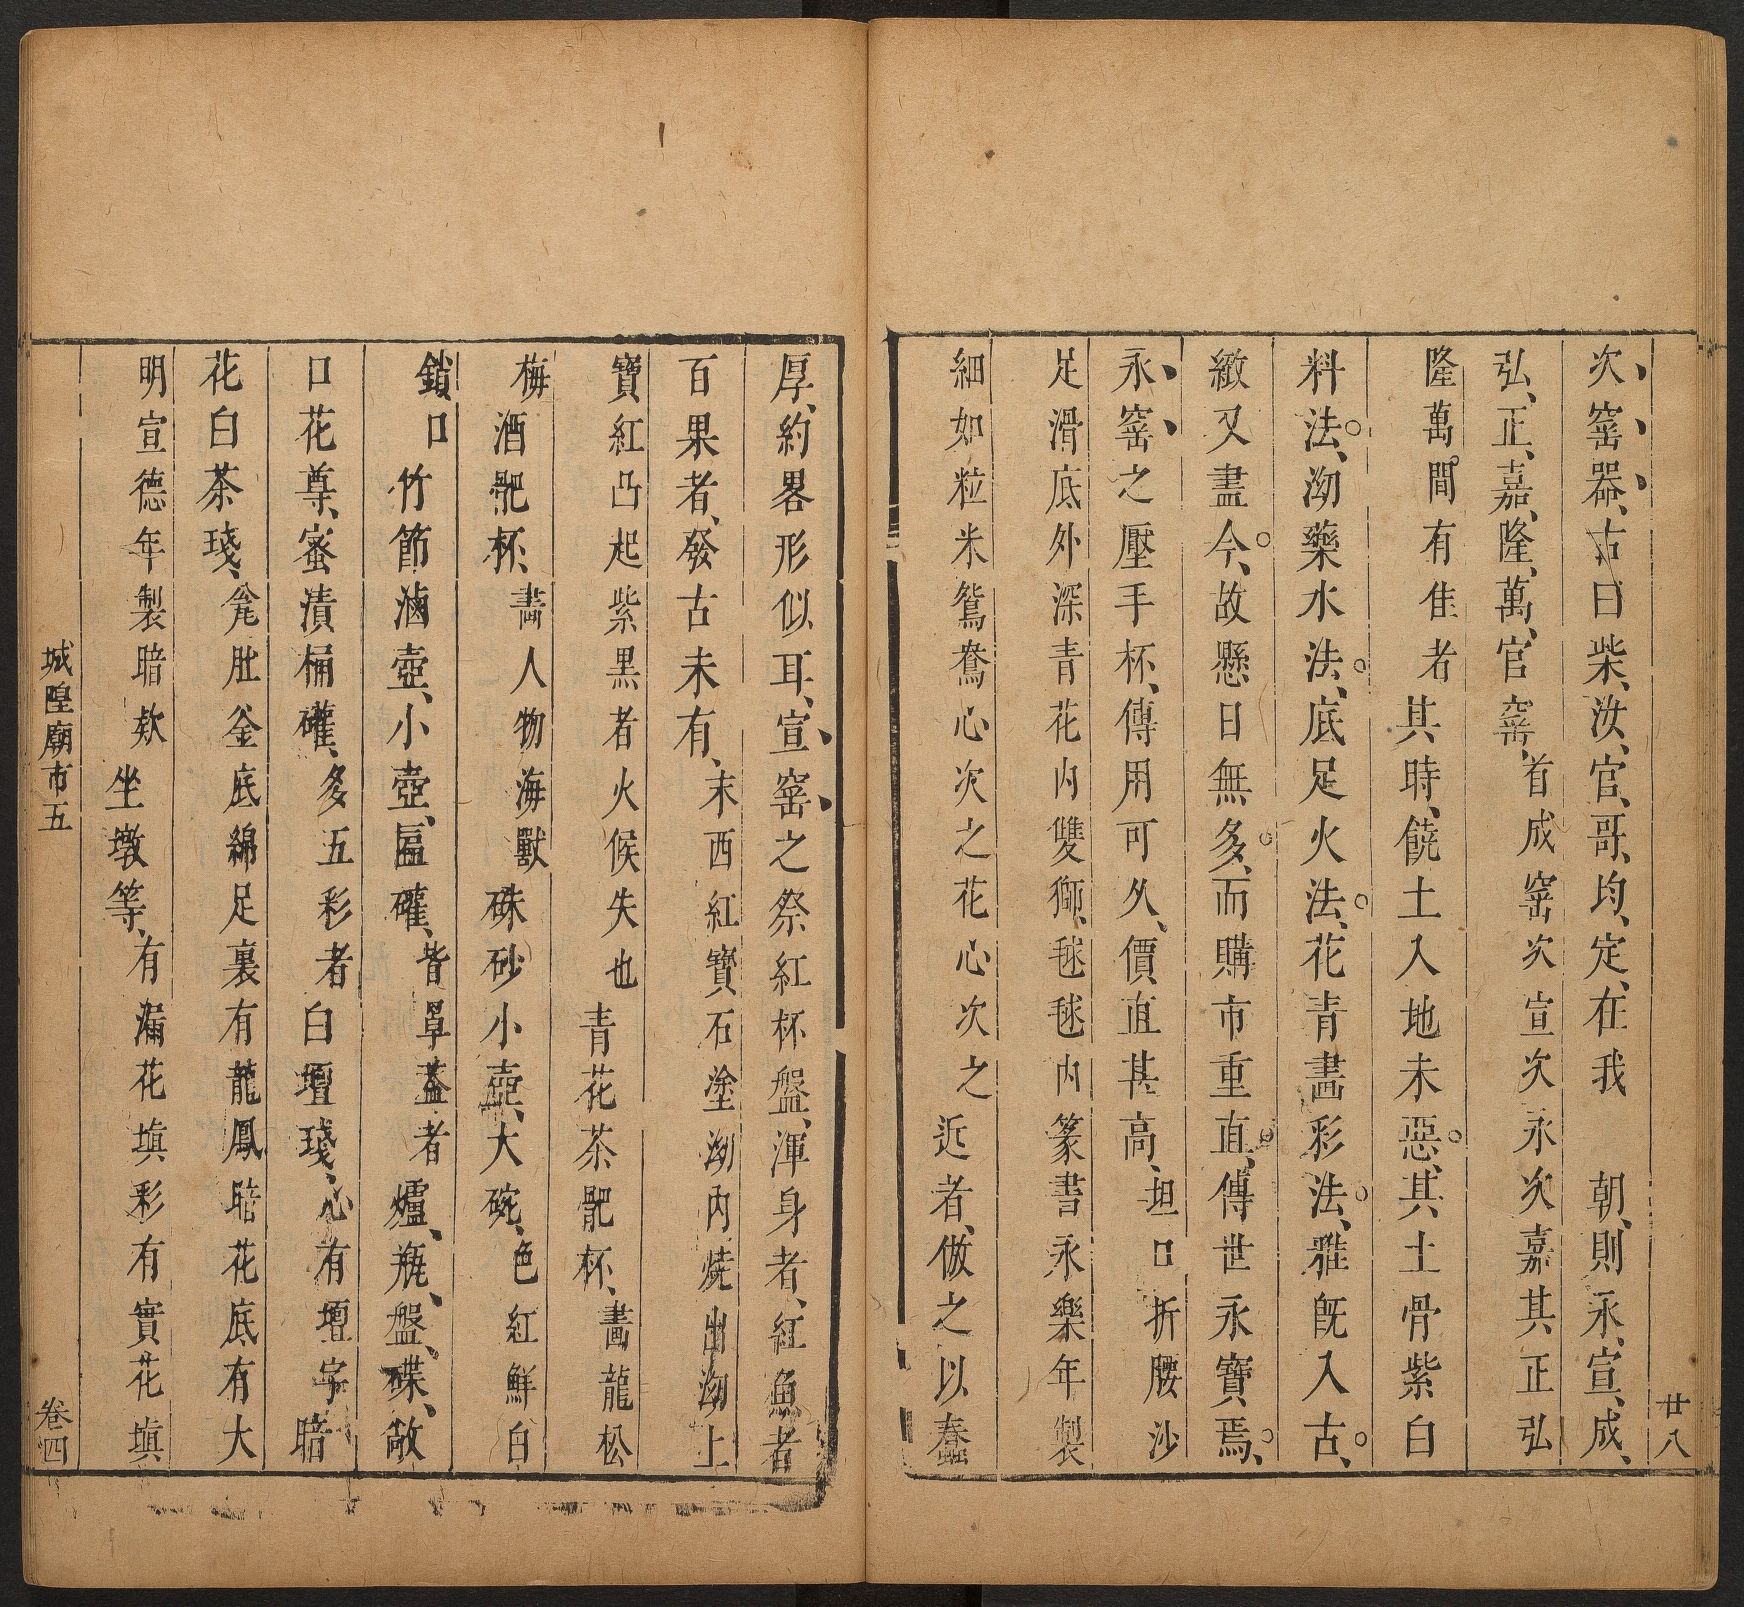 廿八
次窑器、古曰柴、汝、官、哥、均、定、在我　朝、則永、宣、成、
弘、正、嘉、隆、萬、官窑、首成窑次宣次永次嘉其正弘
隆萬間有佳者其時、饒土入地未惡、其土骨紫白
料法、泑藥水法、底足火法、花青畫彩法、雅旣入古、
緻又盡今、故懸日無多、而購市重直、傳世永寶焉、
永窑之壓手杯、傳用可久、價直甚高、坦口折腰沙
足滑底外深青花内雙獅、毬毬内篆書永樂年製
細如粒米鴛鴦心次之花心次之近者、倣之以蠢
厚、約畧形似耳、宣窑之祭紅杯盤、渾身者、紅魚者
百果者、發古未有、末西紅寶石塗泑内燒出泑上
寶紅凸起紫黑者火候失也青花茶靶杯、畫龍松
梅酒靶杯、畫人物海獸硃砂小壺、大碗、色紅鮮白
鎖口竹節滷壺、小壺、匾礶、皆罩葢者爐、瓶、盤、碟、敞
口花尊、蜜漬桶礶、多五彩者白壇琖、心有壇字暗
花白茶琖、瓮肚釜底綿足裏有龍鳳暗花底有大
明宣德年製暗欵坐墩等、有漏花塡彩有實花塡
城隍廟市五
卷四